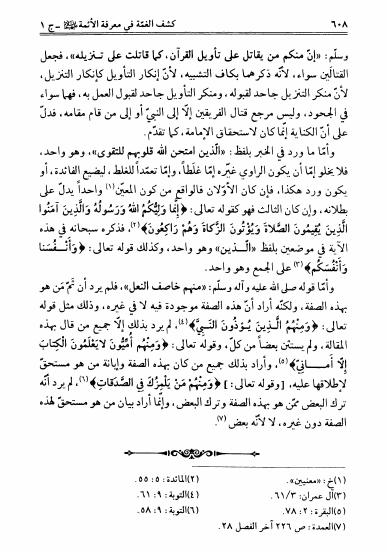 ٦٠٨ كشف الغمّة في معرفة الأئمة - ج ١
وسلّم: «إنّ منكم من يقاتل على تأويل القرآن، كما قاتلت على تنزيله»، فجعل
القتالين سواء، لأنّه ذكرهما بكاف التشبيه، لأنّ إنكار التأويل كإنكار التنزيل،
لأنّ منكر التنزيل جاحد لقبوله، ومنكر التأويل جاحد لقبول العمل به، فهما سواء
في الجحود، وليس مرجع قتال الفريقين إلّا إلى النبيّ أو إلى من قام مقامه، فدلّ
على أنّ الكناية إنّما كان لاستحقاق الإمامة، كما تقدّم.
وأمّا ما ورد في الخبر بلفظ: «الّذين امتحن الله قلوبهم للتقوى»، وهو واحد،
فلا يخلو إمّا أن يكون الراوي غيّره إمّا غلطاً، وإمّا تعمداً للغلط، ليضيع الفائدة، أو
يكون ورد هكذا، فإن كان الأوّلان فالواقع من كون المعيّن(١) واحداً يدلّ على
بطلانه، وإن كان الثالث فهو كقوله تعالى: ﴿إِنَّمَا وَلِيُّكُمُ اللهُ وَرَسُولُهُ وَالَّذِينَ آمَنُوا
الَّذِينَ يُقِيمُونَ الصَّلاةَ وَيُؤْتُونَ الزَّكاةَ وَهُمْ رَاكِعُونَ﴾(٢)، فذكره سبحانه في هذه
الآية في موضعين بلفظ «الّذين» وهو واحد، وكذلك قوله تعالى: ﴿وَأَنْفُسَنا
وَأَنْفُسَكُم﴾(٣) على الجمع وهو واحد.
وأمّا قوله صلى الله عليه وآله وسلّم: «منهم خاصف النعل»، فلم يرد أن ثَمّ من هو
بهذه الصفة، ولكنّه أراد أنّ هذه الصفة موجودة فيه لا في غيره، وذلك مثل قوله
تعالى: ﴿وَمِنْهُمُ الَّذِينَ يُؤذُونَ النَّبِيَّ﴾(٤)، لم يرد بذلك إلّا جميع من قال بهذه
المقالة، ولم يستثن بعضاً من كلّ، وقوله تعالى: ﴿وَمِنْهُم أُمِّيُّونَ لايَعْلَمُونَ الْكِتَابَ
إِلّا أَمانِيَّ﴾(٥)، وأراد بذلك جميع من كان بهذه الصفة وإبانة من هو مستحقّ
لإطلاقها عليه، [وقوله تعالى:] ﴿وَمِنْهُمْ مَنْ يَلْمِزُكَ فِي الصَّدَقاتِ﴾(٦)، لم يرد أنّه
ترك البعض ممّن هو بهذه الصفة وترك البعض، وإنّما أراد بيان من هو مستحقّ لهذه
الصفة دون غيره، لا لأنّه بعض (٧).
(١) خ: «معنيين». (٢) المائدة: ٥: ٥٥.
(٣) آل عمران: ٣/٦١. (٤) التوبة: ٩: ٦١.
(٥) البقرة: ٢: ٧٨. (٦) التوبة: ٩: ٥٨.
(٧) العمدة: ص ٢٢٦ آخر الفصل ٢٨.